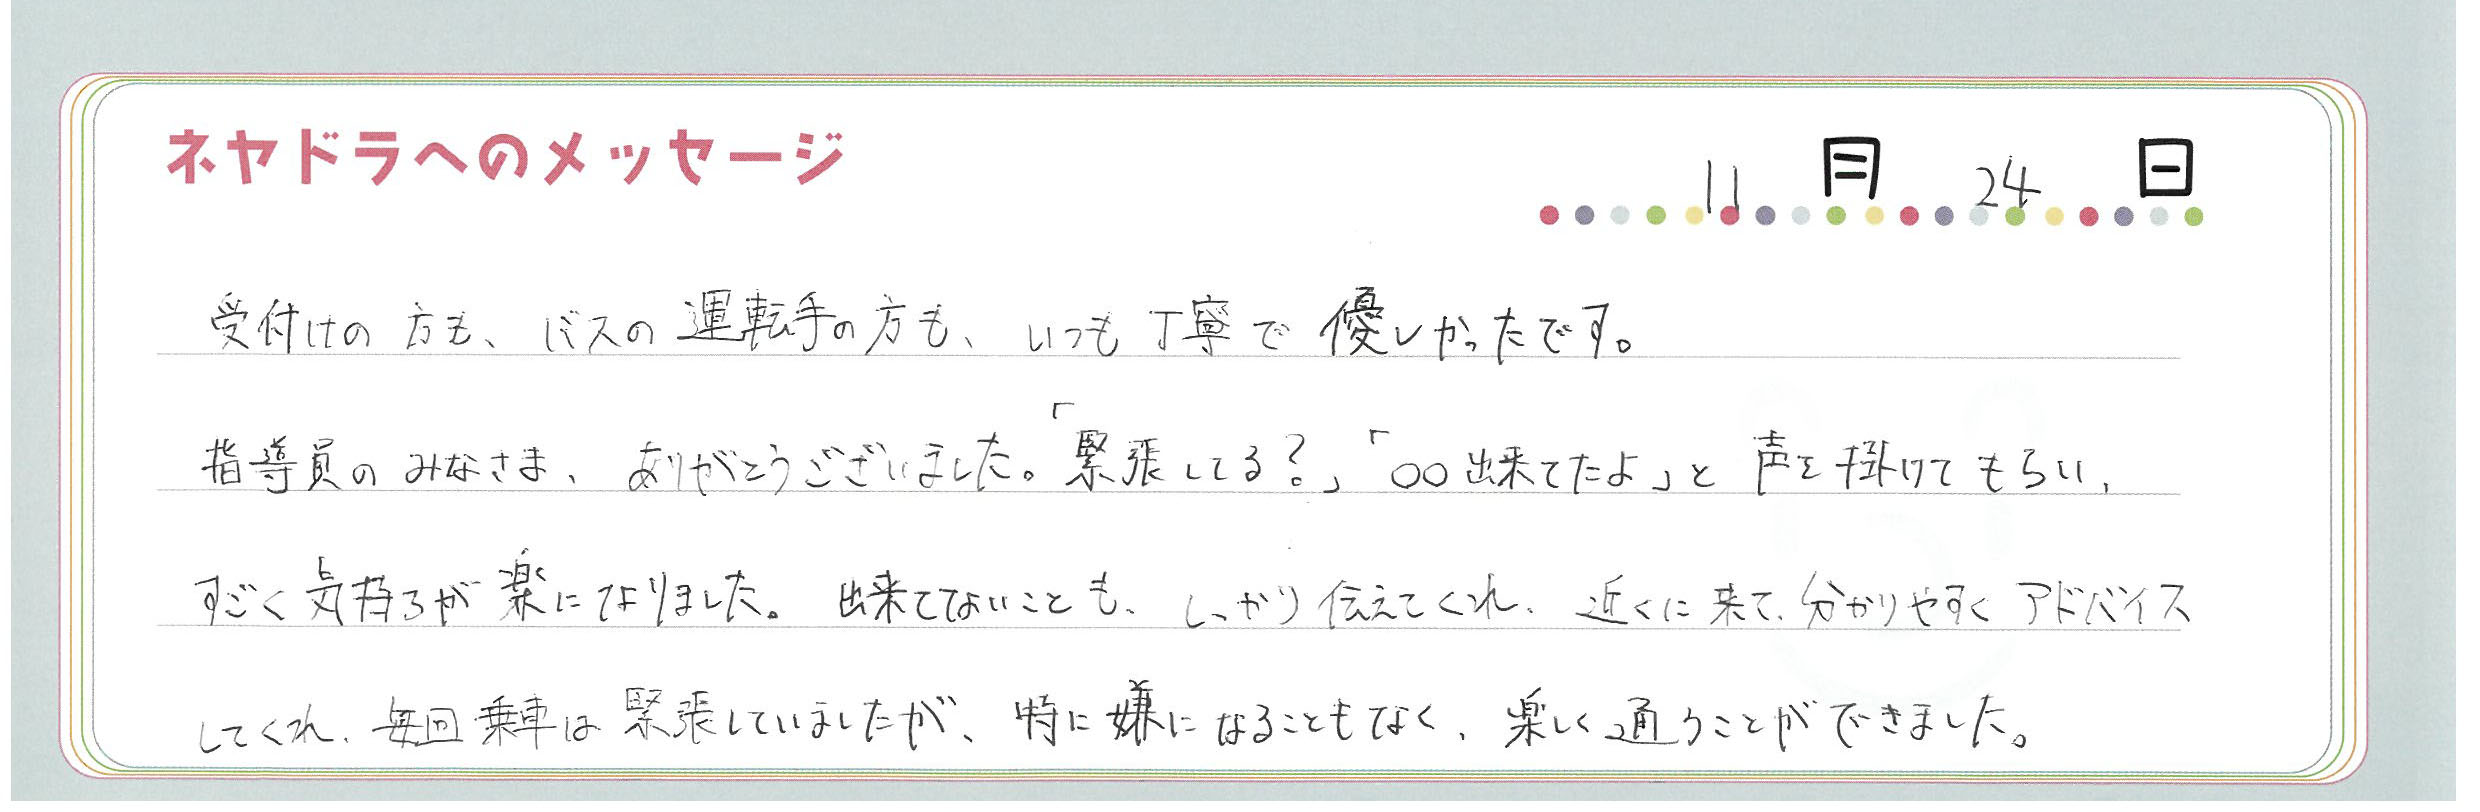 ネヤドラへのメッセージ
11月24日
受付けの方も、バスの運転手の方も、いつも丁寧で優しかったです。
指導員のみなさま、ありがとうございました。「緊張してる?」「○○出来てたよ」と声を掛けてもらい、
すごく気持ちが楽になりました。出来てないことも、しっかり伝えてくれ、近くに来て、分かりやすくアドバイス
してくれ、毎回乗車は緊張していましたが、特に嫌になることもなく、楽しく通うことができました。